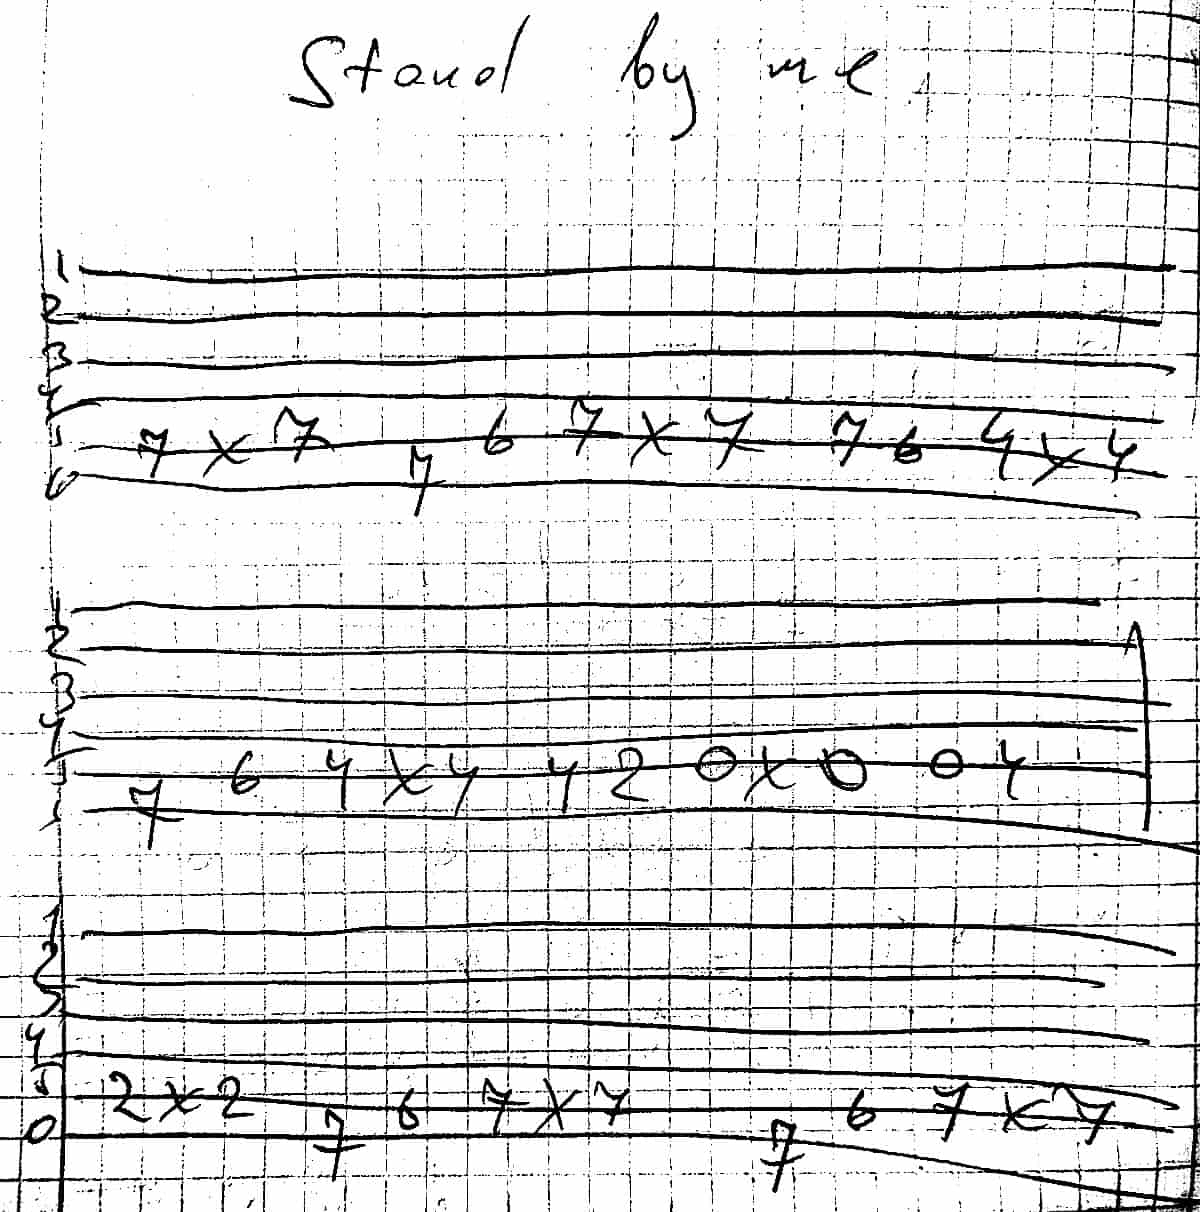 Stand by me
1
2
3
4
5 7 x 7 6 7 x 7 7 6 4 x 4
6 7
1
2
3
4
5 6 4 x 4 4 2 0 x 0 0 4
7
1
2
3
4
5 2 x 2 6 7 x 7 6 7 x 7
0 7 7